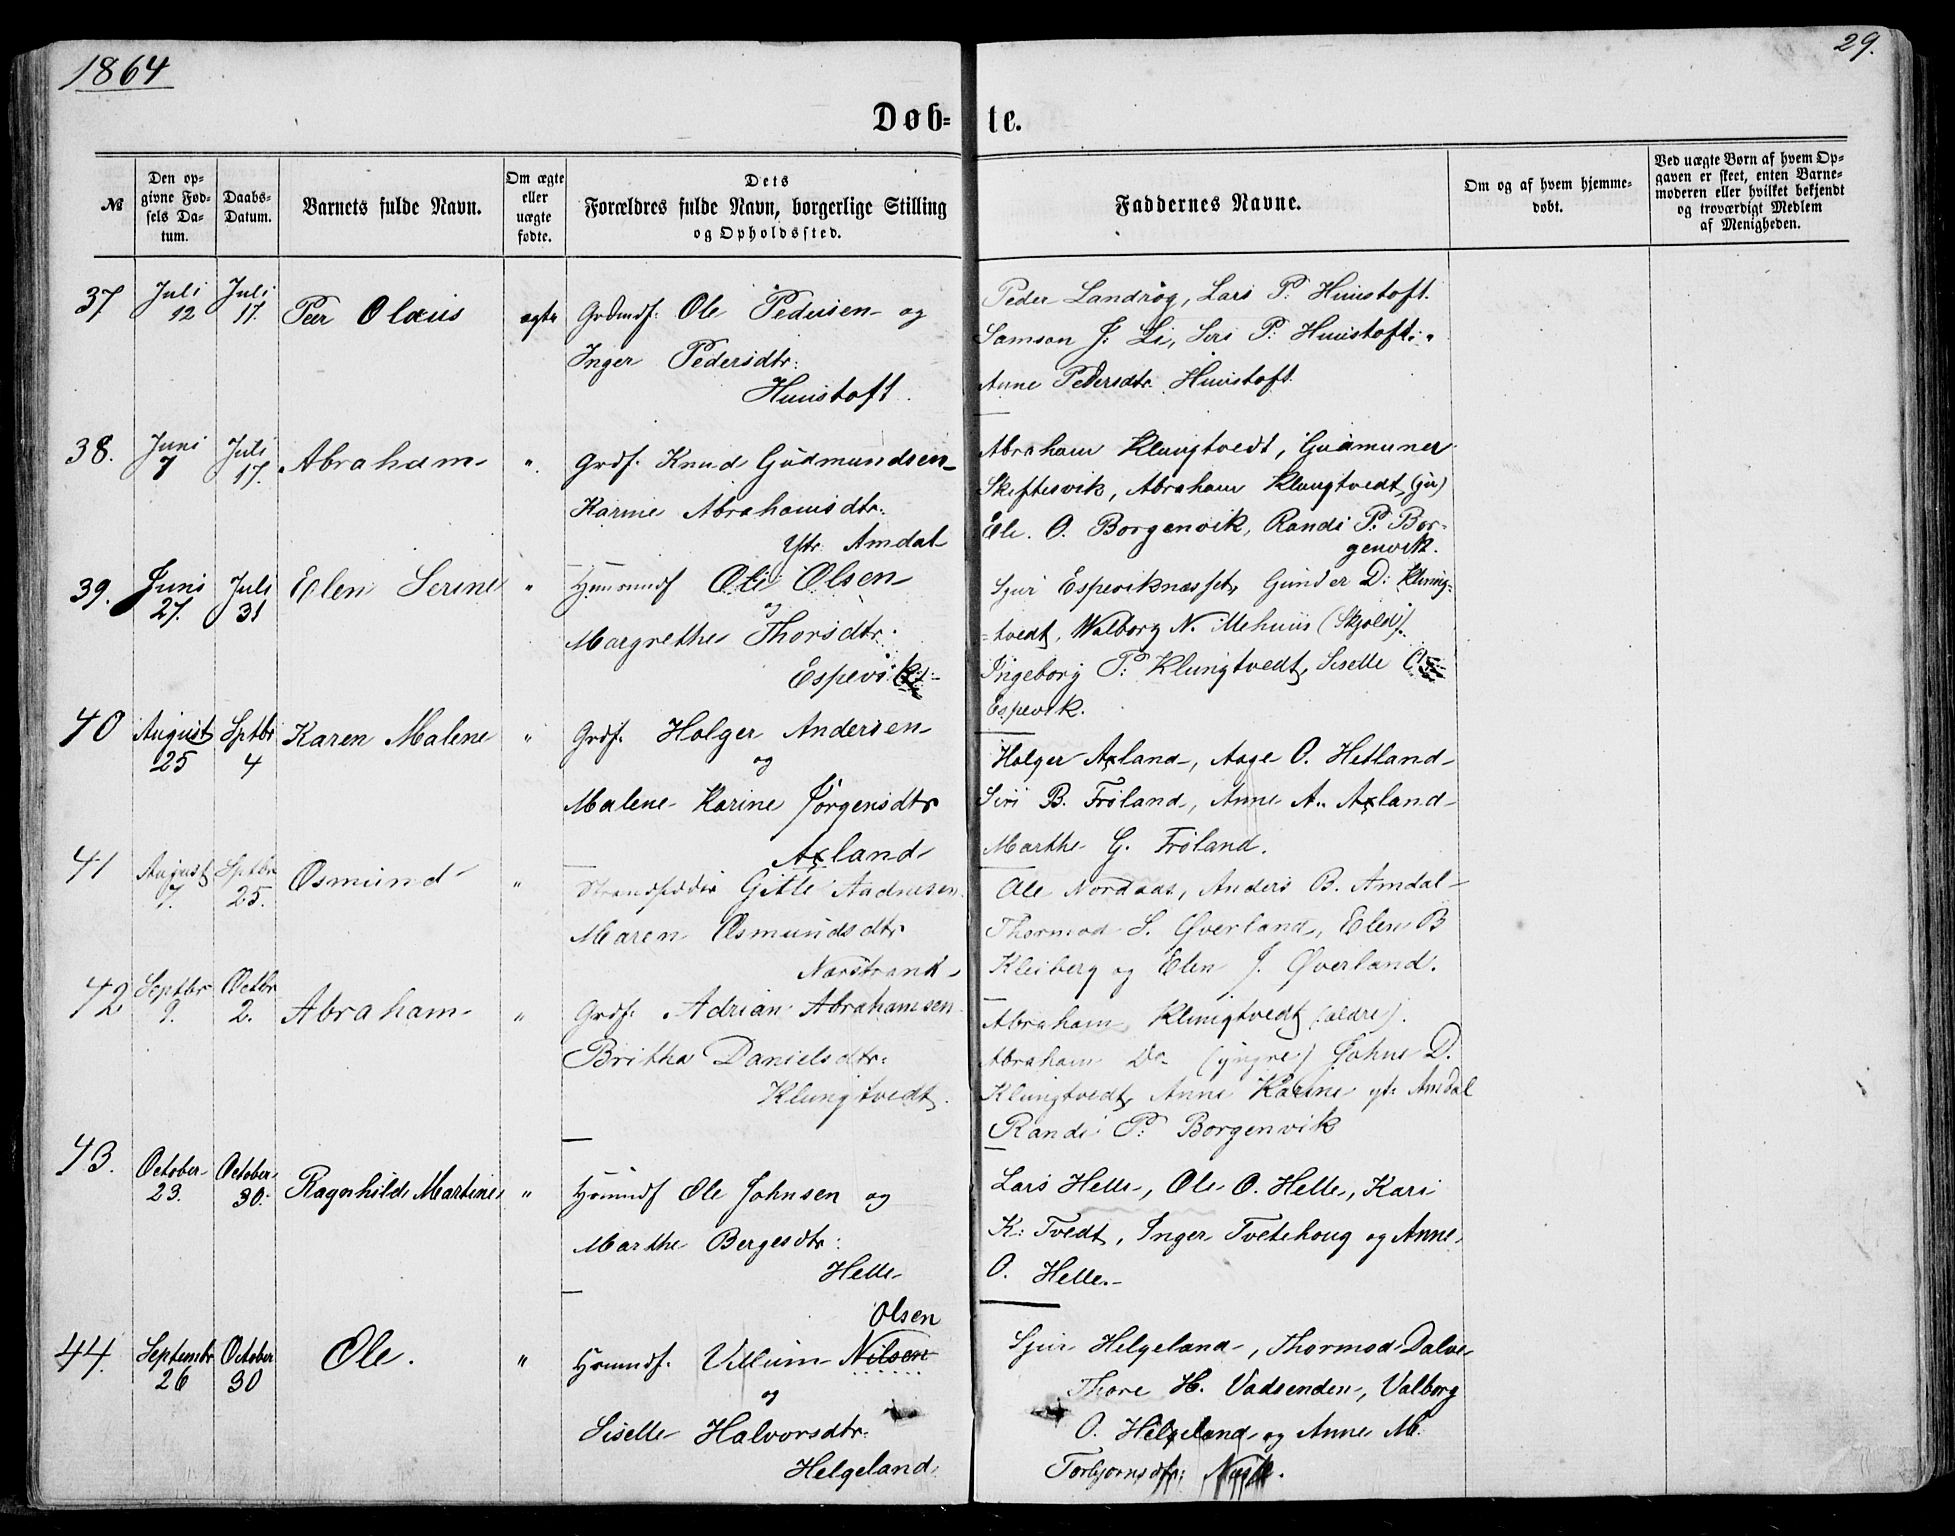 1864
29.
Døb-
te.
№
Den op-
givne Fød-
sels Da-
tum.
Daabs-
Datum.
Barnets fulde Navn.
Om ægte
eller
uægte
fødte.
Dets
Forældres fulde Navn, borgerlige Stilling
og Opholdssted.
Faddernes Navne.
Om og af hvem hjemme-
døbt.
Ved uægte Børn af hvem Op-
gaven er skeet, enten Barne-
moderen eller hvilket bekjendt
og troværdigt Medlem
af Menigheden.
37 Juli 12 Juli 17. Peer Olaus ægte Grdmdf: Ole Pedersen og
Inger Pedersdtr:
Huustoft.
Peder Landrøg, Lars P: Huustoft.
Samson J. Li, Siri P: Huustoft.
Anne Pedersdtr. Huustoft.
38. Juni 7 Juli 17. Abraham " Grdf. Knud Gudmundsen
Karine Abrahamsdtr:
Ytr. Amdal
Abraham Klungtvedt, Gudmuner
Skeftesvik, Abraham Klungtvedt, (jur)
Ole. O. Borgenvik, Randi P. Bor-
genvik.
39. Juni 27. Juli 31 Elen Serine " Huusmdf Ole Olsen
og
Margrethe Thorsdtr.
Espevik
Sjur Espeviknesset, Gunder D: Klung-
-tvedt, Walborg N. Mehuus (Skjold).
Ingeborg P: Klungtvedt, Siselle
Espevik.
40 August 25 Sptbr 4 Karen Malene " Grdf. Holger Andersen
og
Malene Karine Jørgensdtr
Axland
Holger Axland, Aage O. Hetland
Siri B. Frøland, Anne A. Axland
Marthe G. Frøland.
41 August 7. Sptbr 25. Osmund " Strandsidder Gitle Aadnesen
Maren Osmundsdtr
Nærstrand
Ole Nordaas, Anders B. Amdal
Thormod S. Øverland, Elen B
Kleiberg og Elen J. Øverland.
42 Septbr 9. Octbr 2. Abraham " Grdf. Adrian Abrahamsen
Britha Danielsdtr:
Klungtvedt.
Abraham Klungtvedt (ældre).
Abraham Do (yngre) Johns D.
Klungtvedt, Anne Karine yt: Amdal
Randi P: Borgenvik
43. October 23. October 30. Ragnhilde Martine " Huusmdf Ole Johnsen og
Marthe Bergesdtr:
Helle
Lars Helle, Ole O. Helle, Kari
K: Tvedt, Inger Tvetehoug og Anne
O. Helle.
Olsen
44. Septembr 26 October 30 Ole. " Huusmdf. Villum Nilsen
og
Siselle Halvorsdtr:
Helgeland
Sjur Helgeland, Thormod Dalve
Thore H. Vadsenden, Valborg
O. Helgeland og Anne M.
Torbjørnsdtr: